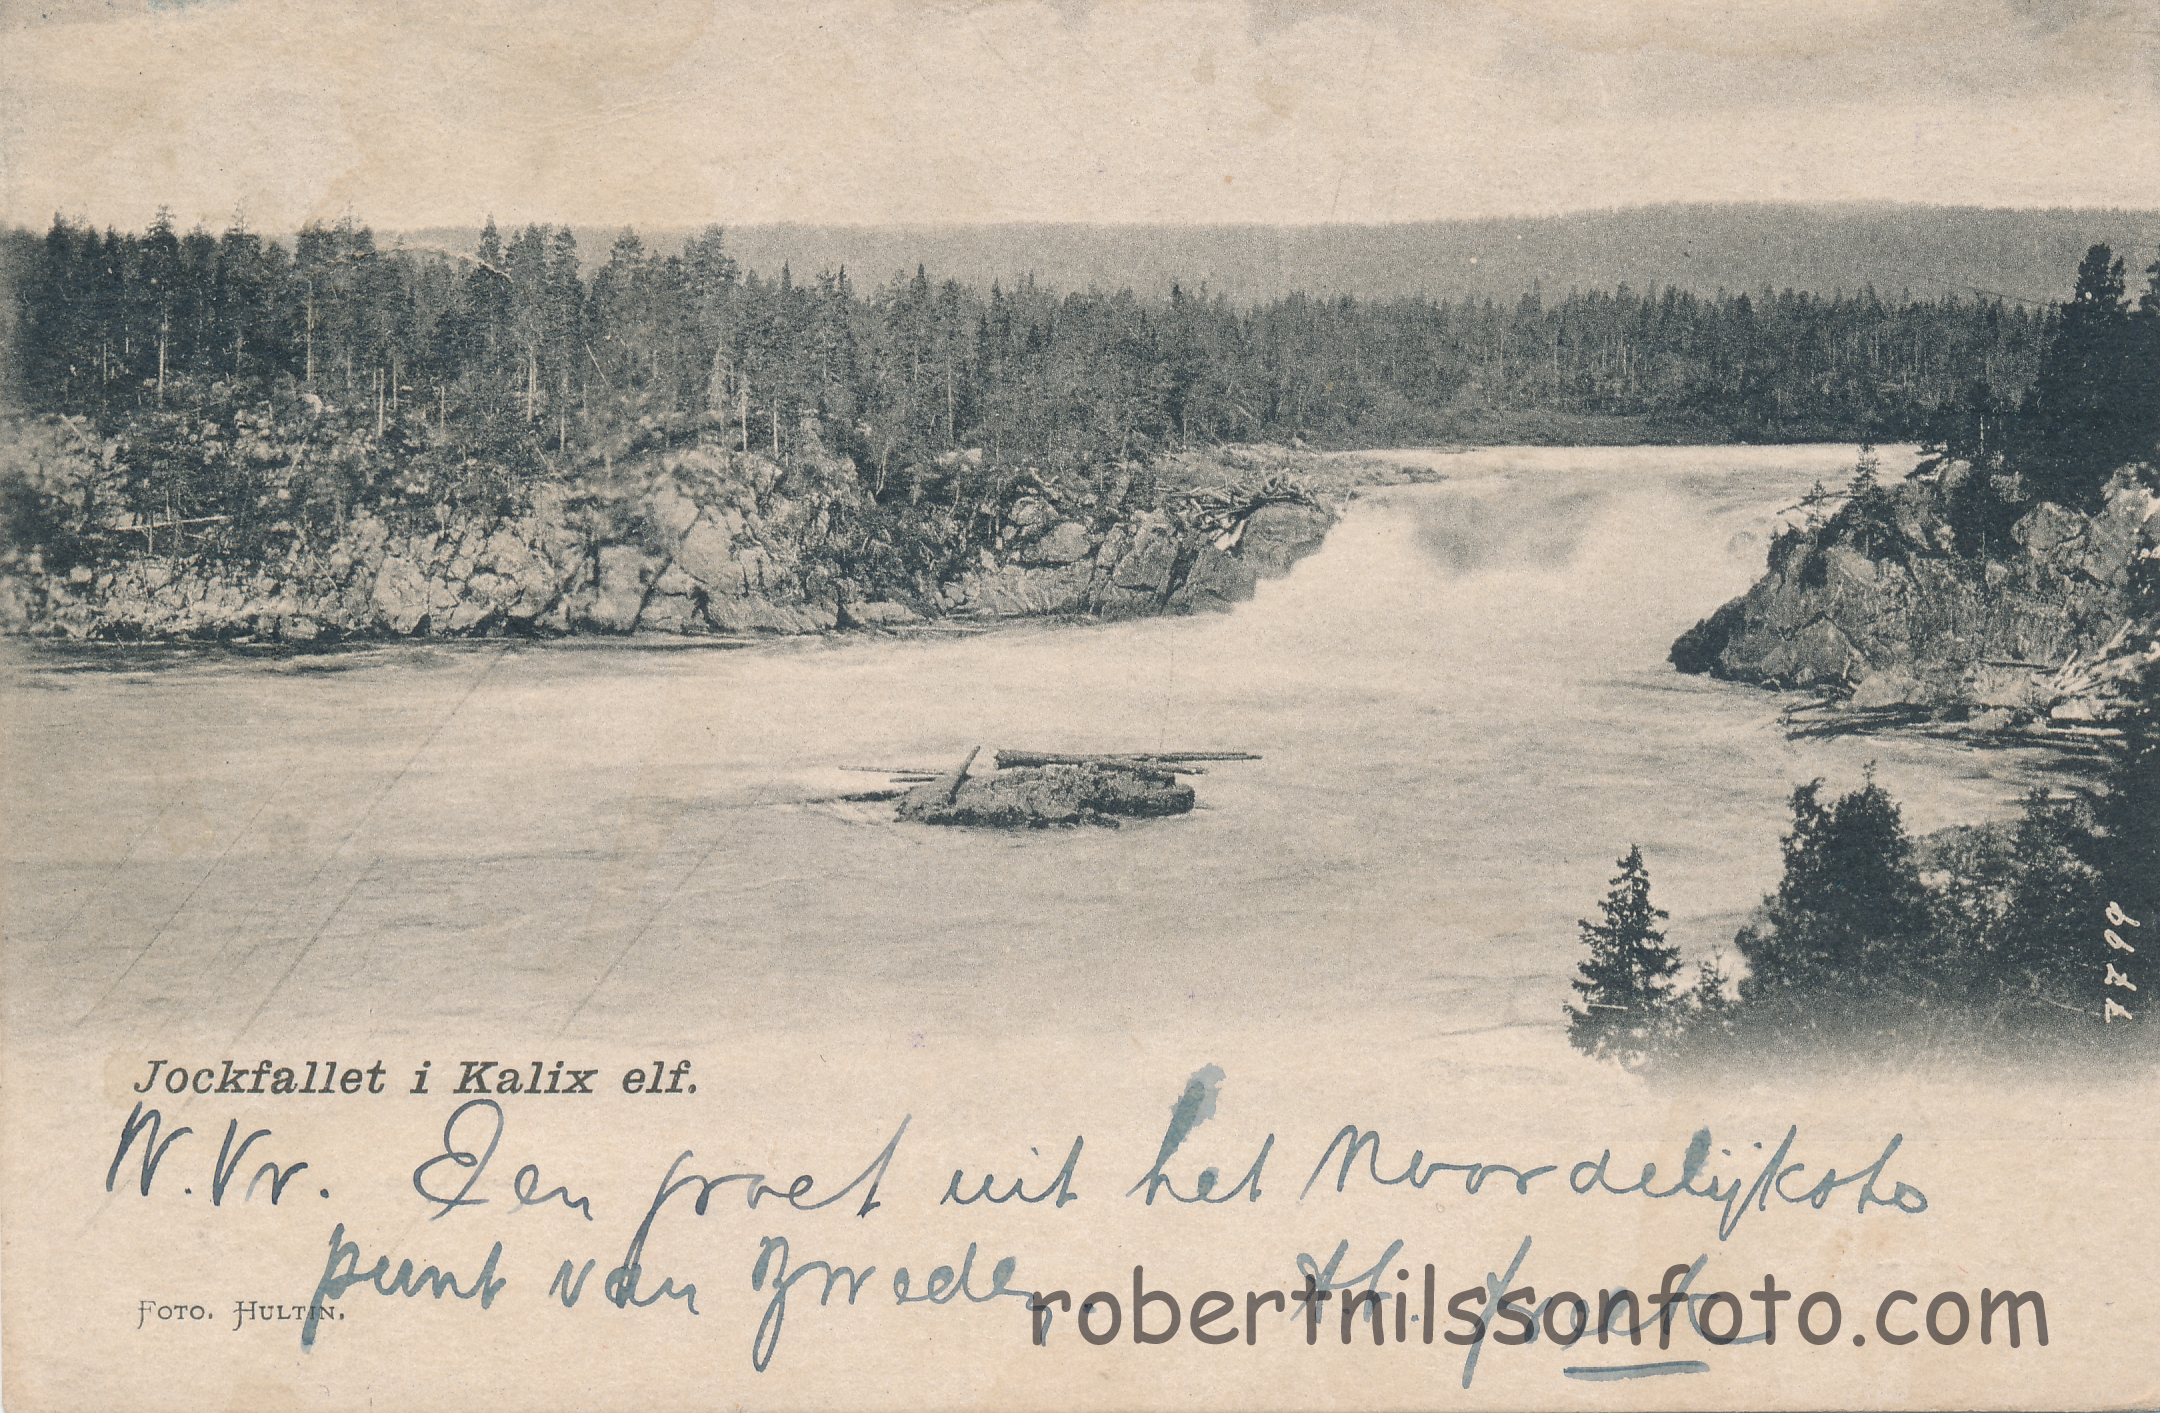 7799
Jockfallet i Kalix elf.
W. Vr. Een groet uit het Noordelijkste
punt van Zweden.
FOTO. HULTIN.
robertnilssonfoto.com